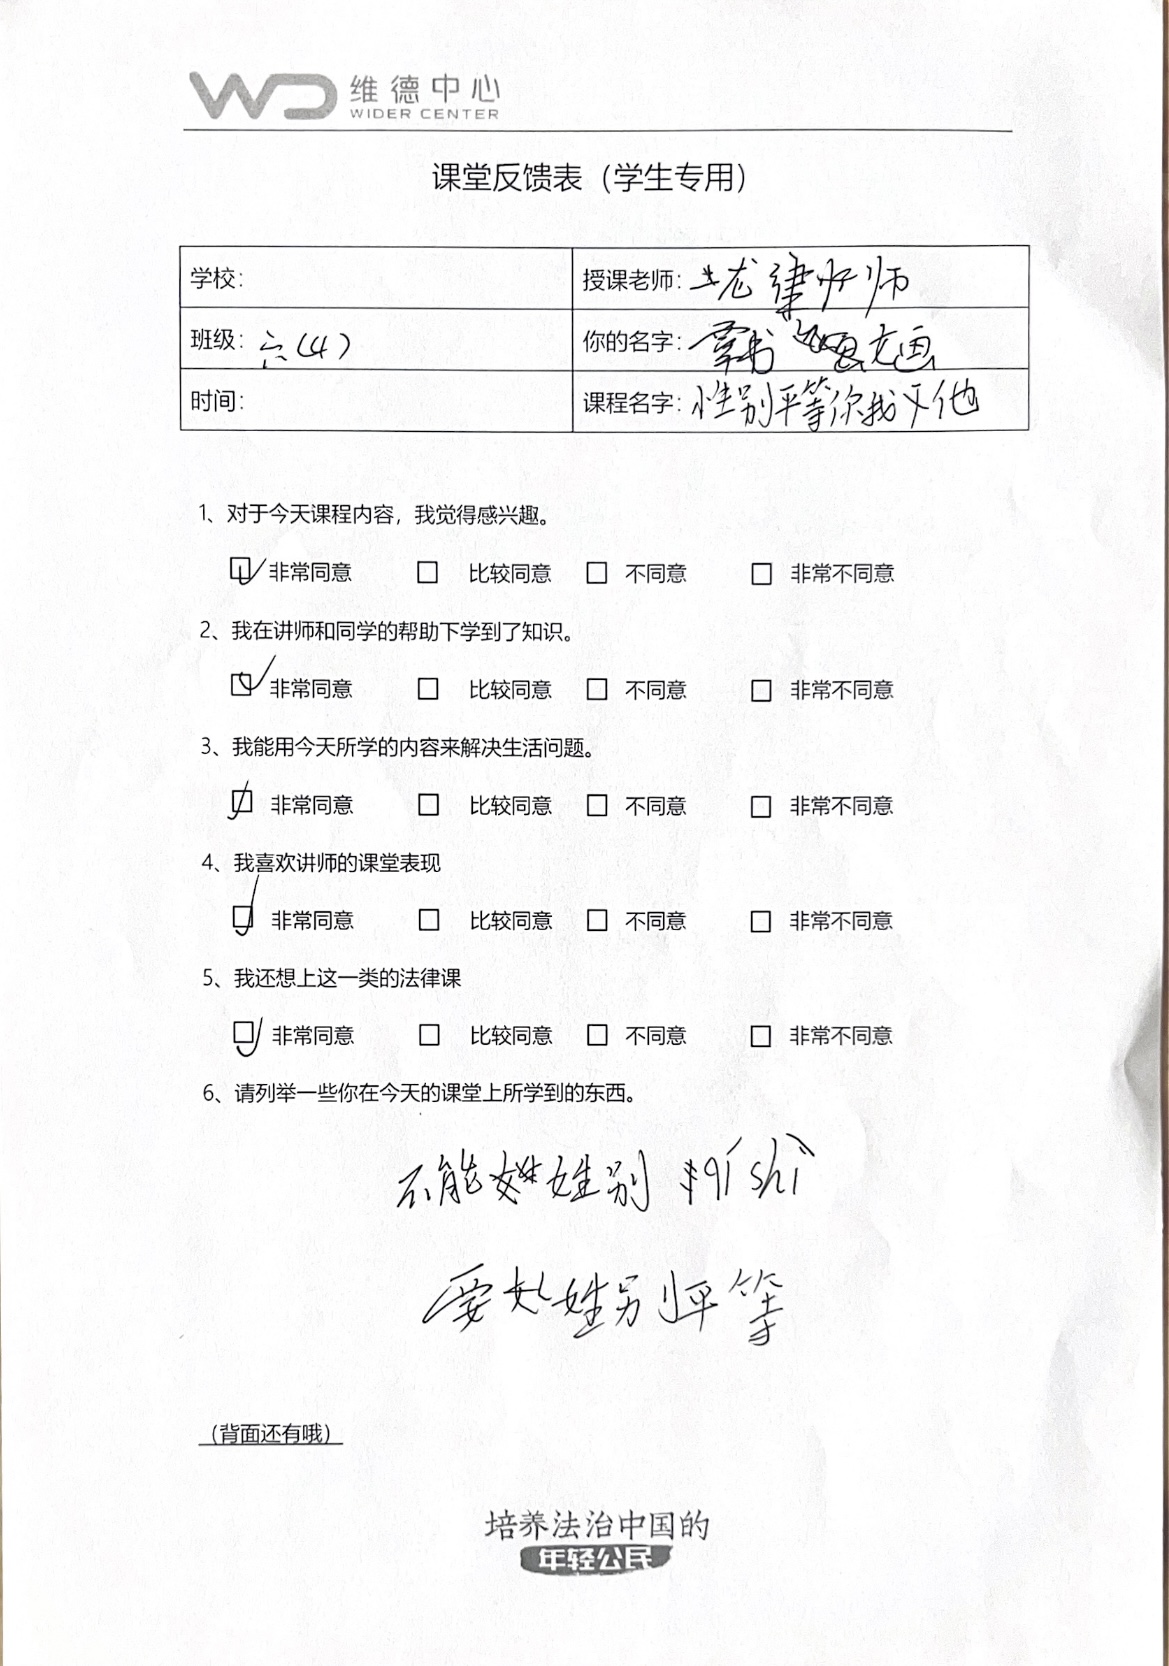 WD 维德中心
WIDER CENTER
课堂反馈表（学生专用）
学校：
授课老师：龙律师
班级：六（4）
你的名字：
时间：
课程名字：性别平等你我他
1、对于今天课程内容，我觉得感兴趣。
☑ 非常同意 □ 比较同意 □ 不同意 □ 非常不同意
2、我在讲师和同学的帮助下学到了知识。
☑ 非常同意 □ 比较同意 □ 不同意 □ 非常不同意
3、我能用今天所学的内容来解决生活问题。
☑ 非常同意 □ 比较同意 □ 不同意 □ 非常不同意
4、我喜欢讲师的课堂表现
☑ 非常同意 □ 比较同意 □ 不同意 □ 非常不同意
5、我还想上这一类的法律课
☑ 非常同意 □ 比较同意 □ 不同意 □ 非常不同意
6、请列举一些你在今天的课堂上所学到的东西。
不能姓别 qí shì
要姓别平等
（背面还有哦）
培养法治中国的
年轻公民